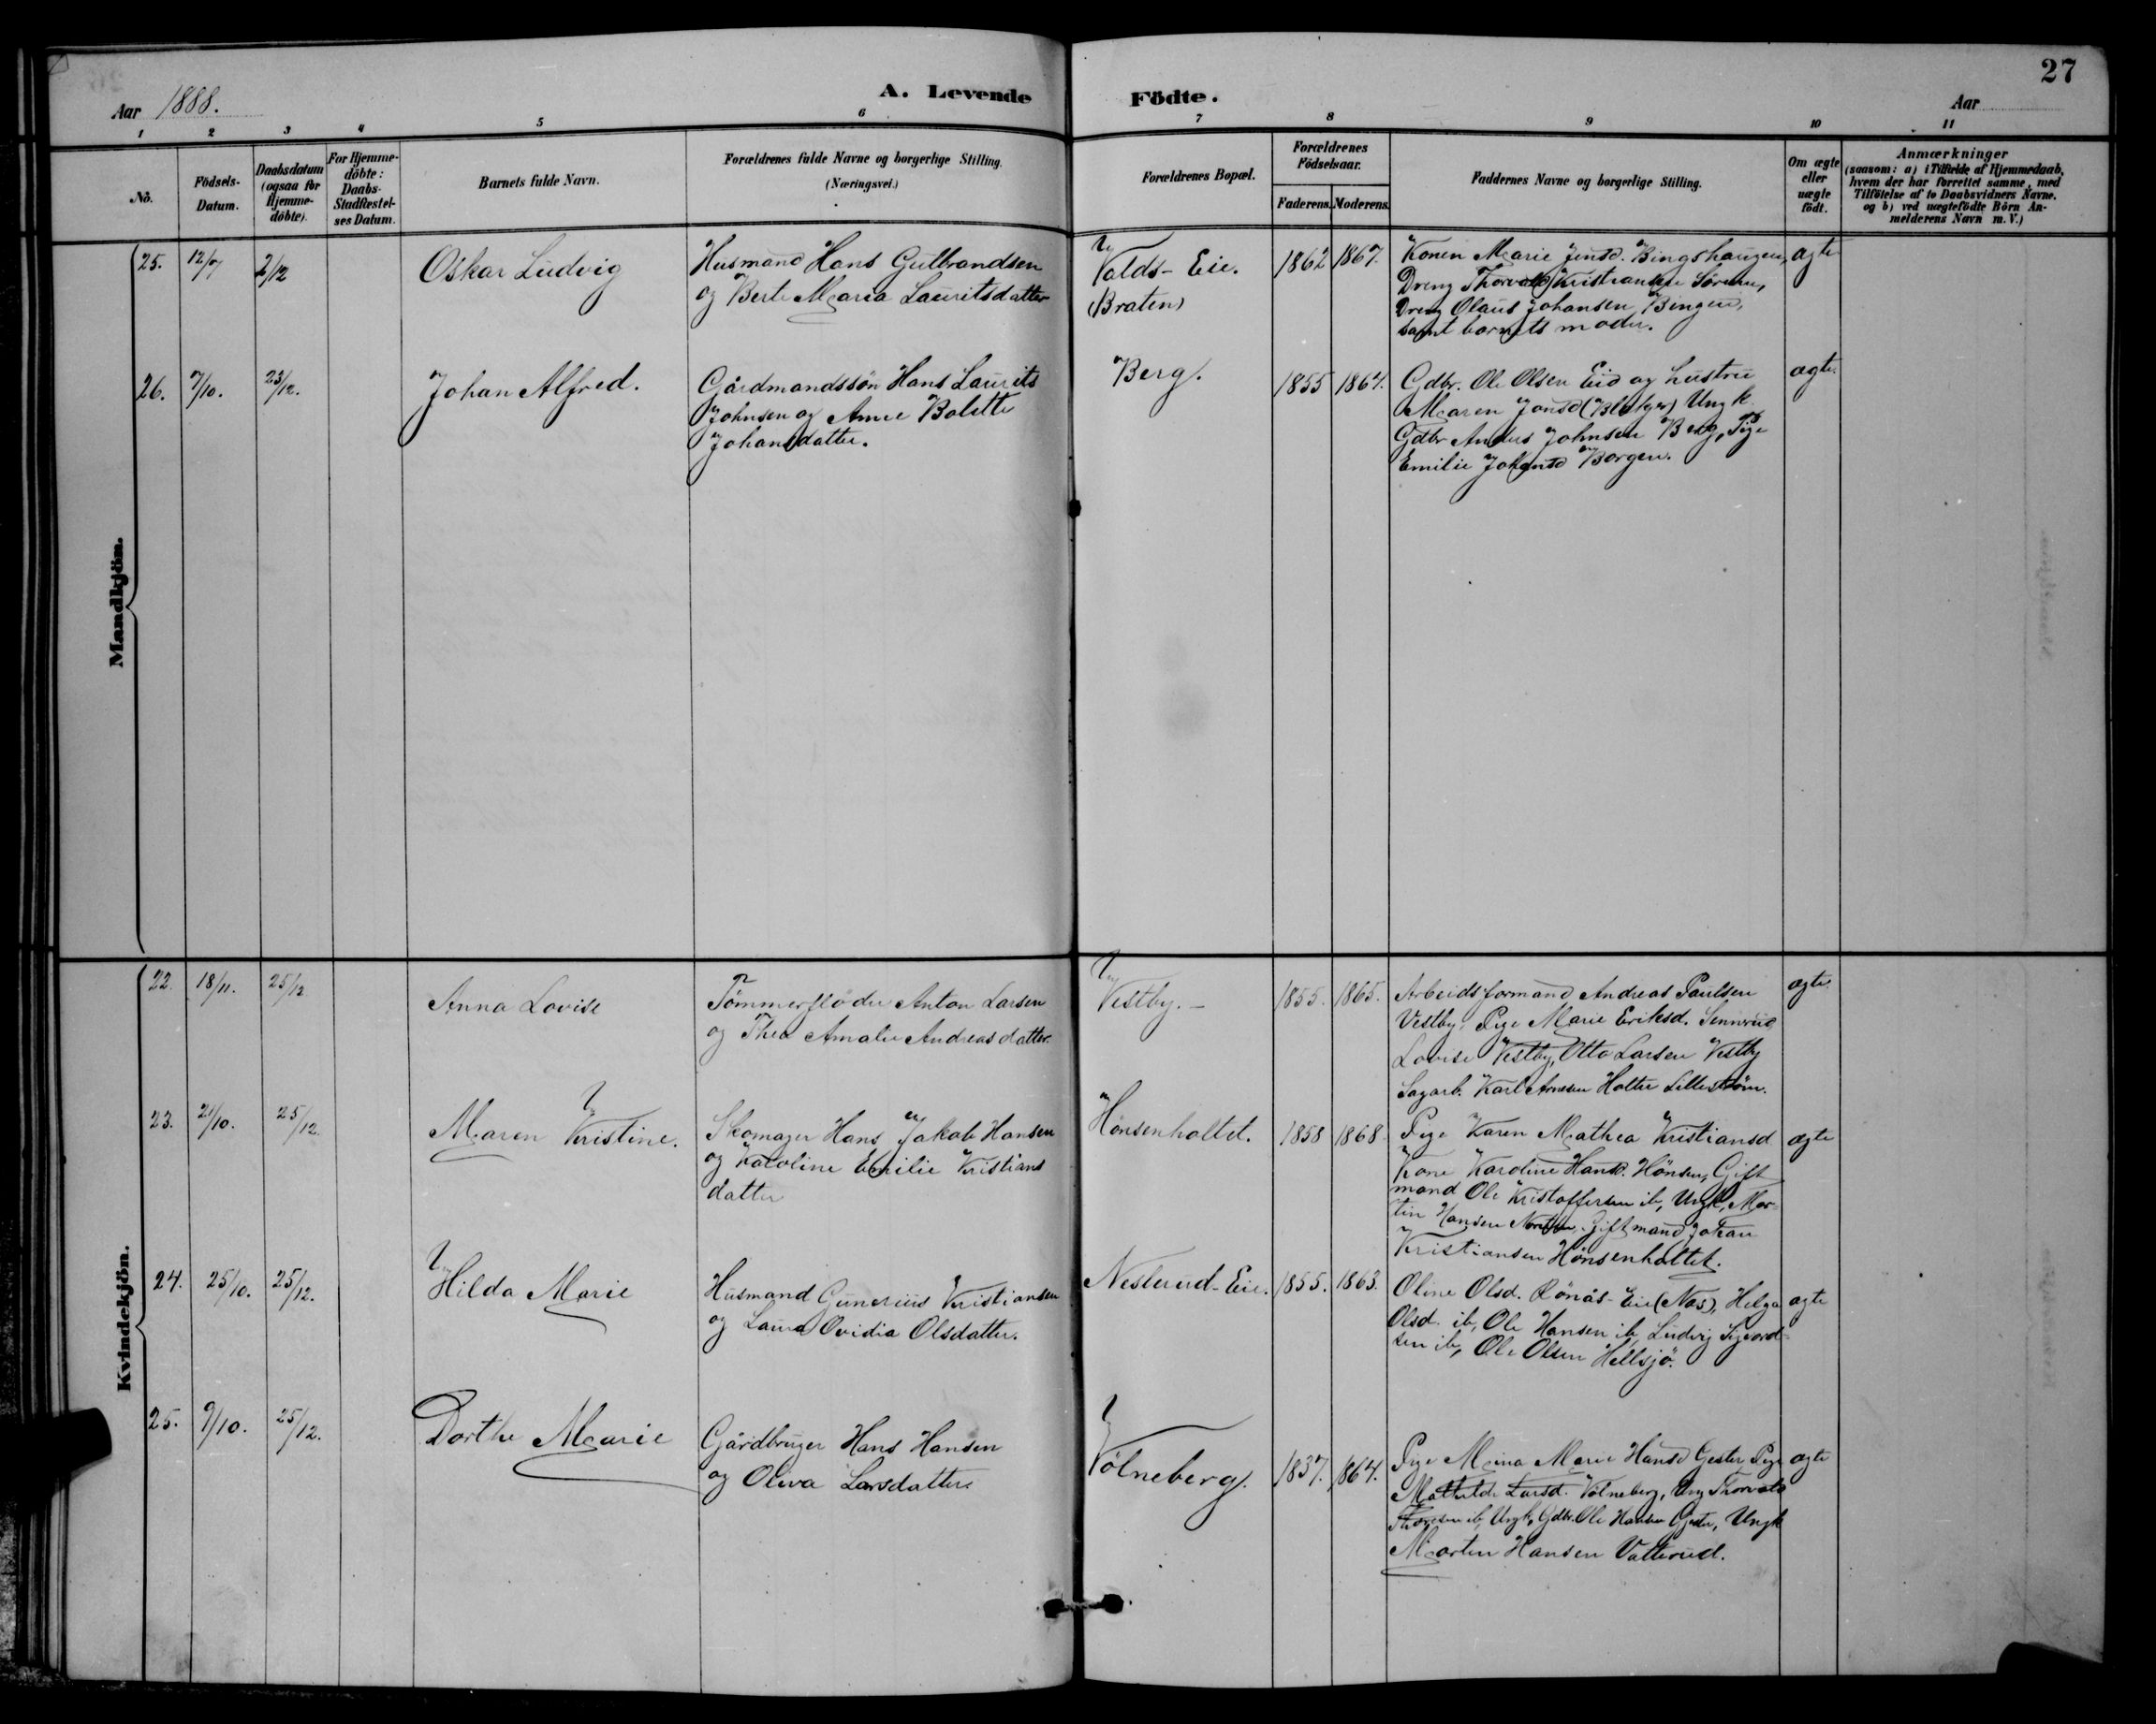 27
Aar 1888.
A. Levende Födte.
Aar
1 2 3 4 5 6 7 8 9 10 11
No.
Födsels-Datum.
Daabsdatum (ogsaa for Hjemme-döbte).
For Hjemme-döbte: Daabs-Stadfæstel-ses Datum.
Barnets fulde Navn.
Forældrenes fulde Navne og borgerlige Stilling.
(Næringsvei.)
Forældrenes Bopæl.
Forældrenes Födselsaar.
Faderens. Moderens.
Faddernes Navne og borgerlige Stilling.
Om ægte eller uægte födt.
Anmærkninger
(saasom: a) i Tilfælde af Hjemmedaab,
hvem der har forrettet samme, med
Tilföielse af to Daabsvidners Navne,
og b) ved uægtefödte Börn An-
melderens Navn m. V.)
Mandkjön.
25. 12/7 2/12 Oskar Ludvig
Husmand Hans Gulbrandsen
og Berte Maria Lauritsdatter
Valds-Eie.
(Braten)
1862 1867.
Konen Marie Jensd. Bingshaugen,
Dreng Thorvald Kristiansen
Dreng Olaus Johansen Bingen,
samt barnets moder.
ægte
26. 7/10. 23/12. Johan Alfred.
Gårdmandssön Hans Laurits
Johnsen og Anne Bolette
Johansdatter.
Berg.
1855 1864.
Gdbr. Ole Olsen Eid og hustru
Maren Jonsd Ungk.
Gdbr Anders Johnsen Berg, Pige
Emilie Johansd Borgen.
ægte
Kvindekjön.
22. 18/11. 25/12 Anna Lovise
Tömmerflöder Anton Larsen
og Thea Amalie Andreasdatter.
Vestby.-
1855. 1865.
Arbeidsformand Andreas Paulsen
Vestby, Pige Marie Eriksd.
Lovise Vestby, Otto Larsen Vestby
Sagarb. Karl Arnesen Holter Lilleström.
ægte
23. 21/10. 25/12. Maren Kristine.
Skomager Hans Jakob Hansen
og Karoline Emilie Kristians
datter
Hönsenholtet.
1858 1868.
Pige Karen Mathea Kristiansd
Kone Karoline Hansd. Hönsen, Gift
mand Ole Kristoffersen ib, Ungk. Mar-
tin Hansen Giftmand Johan
Kristiansen Hönsenholtet.
ægte
24. 25/10. 25/12. Hilda Marie
Husmand Gunerius Kristiansen
og Laura Ovidia Olsdatter.
Neslerud-Eie.
1855. 1863.
Oline Olsd. Rönås-Eie (Næs), Helga
Olsd. ib, Ole Hansen ib, Ludvig Sigvard-
sen ib, Ole Olsen Hellsjö.
ægte
25. 9/10. 25/12. Dorthe Marie
Gårdbruger Hans Hansen
og Oliva Larsdatter
Völneberg.
1837. 1864.
Pige Mina Marie Hansd Gjester Pige
Mathilde Larsd. Völneberg, Ung Thorvald
Thoresen ib, Ungk, Gdbr. Ole Hansen Gjester, Ungk
Marten Hansen Vatterud.
ægte